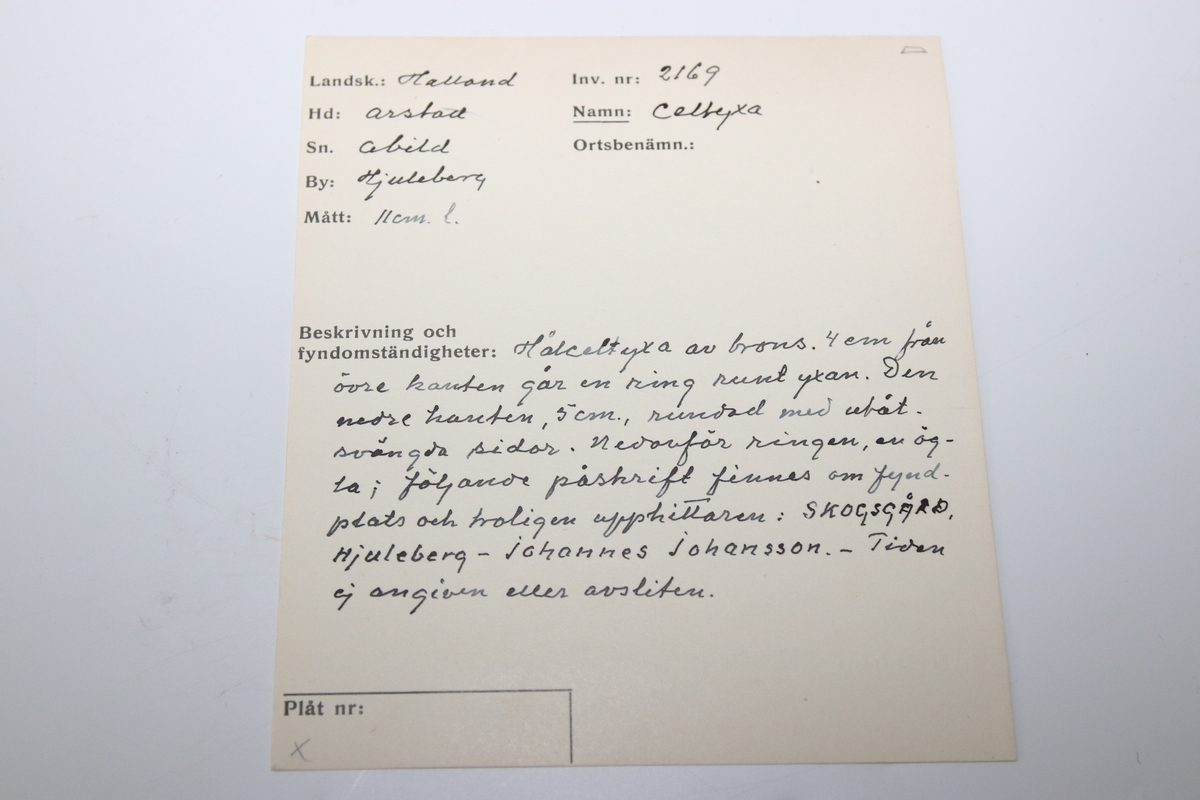 Landsk.: Halland
Inv. nr: 2169
Hd: Årstad
Namn: Celtyxa
Sn. Abild
Ortsbenämn.:
By: Hjuleberg
Mått: 11cm. l.
Beskrivning och
fyndomständigheter: Hålceltyxa av brons. 4 cm från
övre kanten går en ring runt yxan. Den
nedre kanten, 5 cm., rundad med utåt-
svängda sidor. Nedanför ringen, en ög-
la; följande påskrift finnes om fynd-
plats och troligen upphittaren: SKOGSGÅRD,
Hjuleberg - Johannes Johansson. - Tiden
ej angiven eller avsliten.
Plåt nr:
x